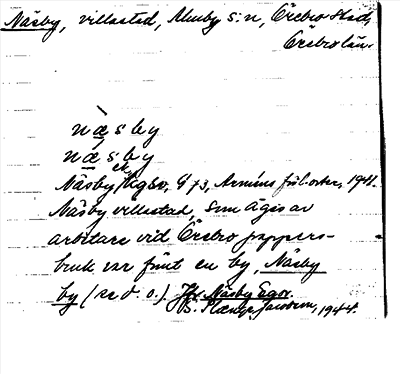 Näsby, villastad, Almby s:n, Örebro stad,
Örebro län.
næsby
næsby
Näsby Egsv, G 73, Arméns 1941.
Näsby villastad, som äges av
arbetare vid Örebro pappers-
bruk var förut en by, Näsby
by (se d. o.). Jfr Näsby Egor.
B. 1944.